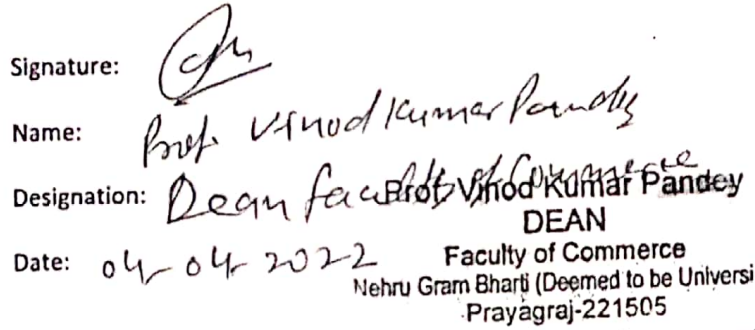 Signature:
Name: Prof. Vinod Kumar Pandey
Designation: Dean faculty of Commerce
Prof. Vinod Kumar Pandey
DEAN
Date: 04-04-2022
Faculty of Commerce
Nehru Gram Bharti (Deemed to be Universi
Prayagraj-221505